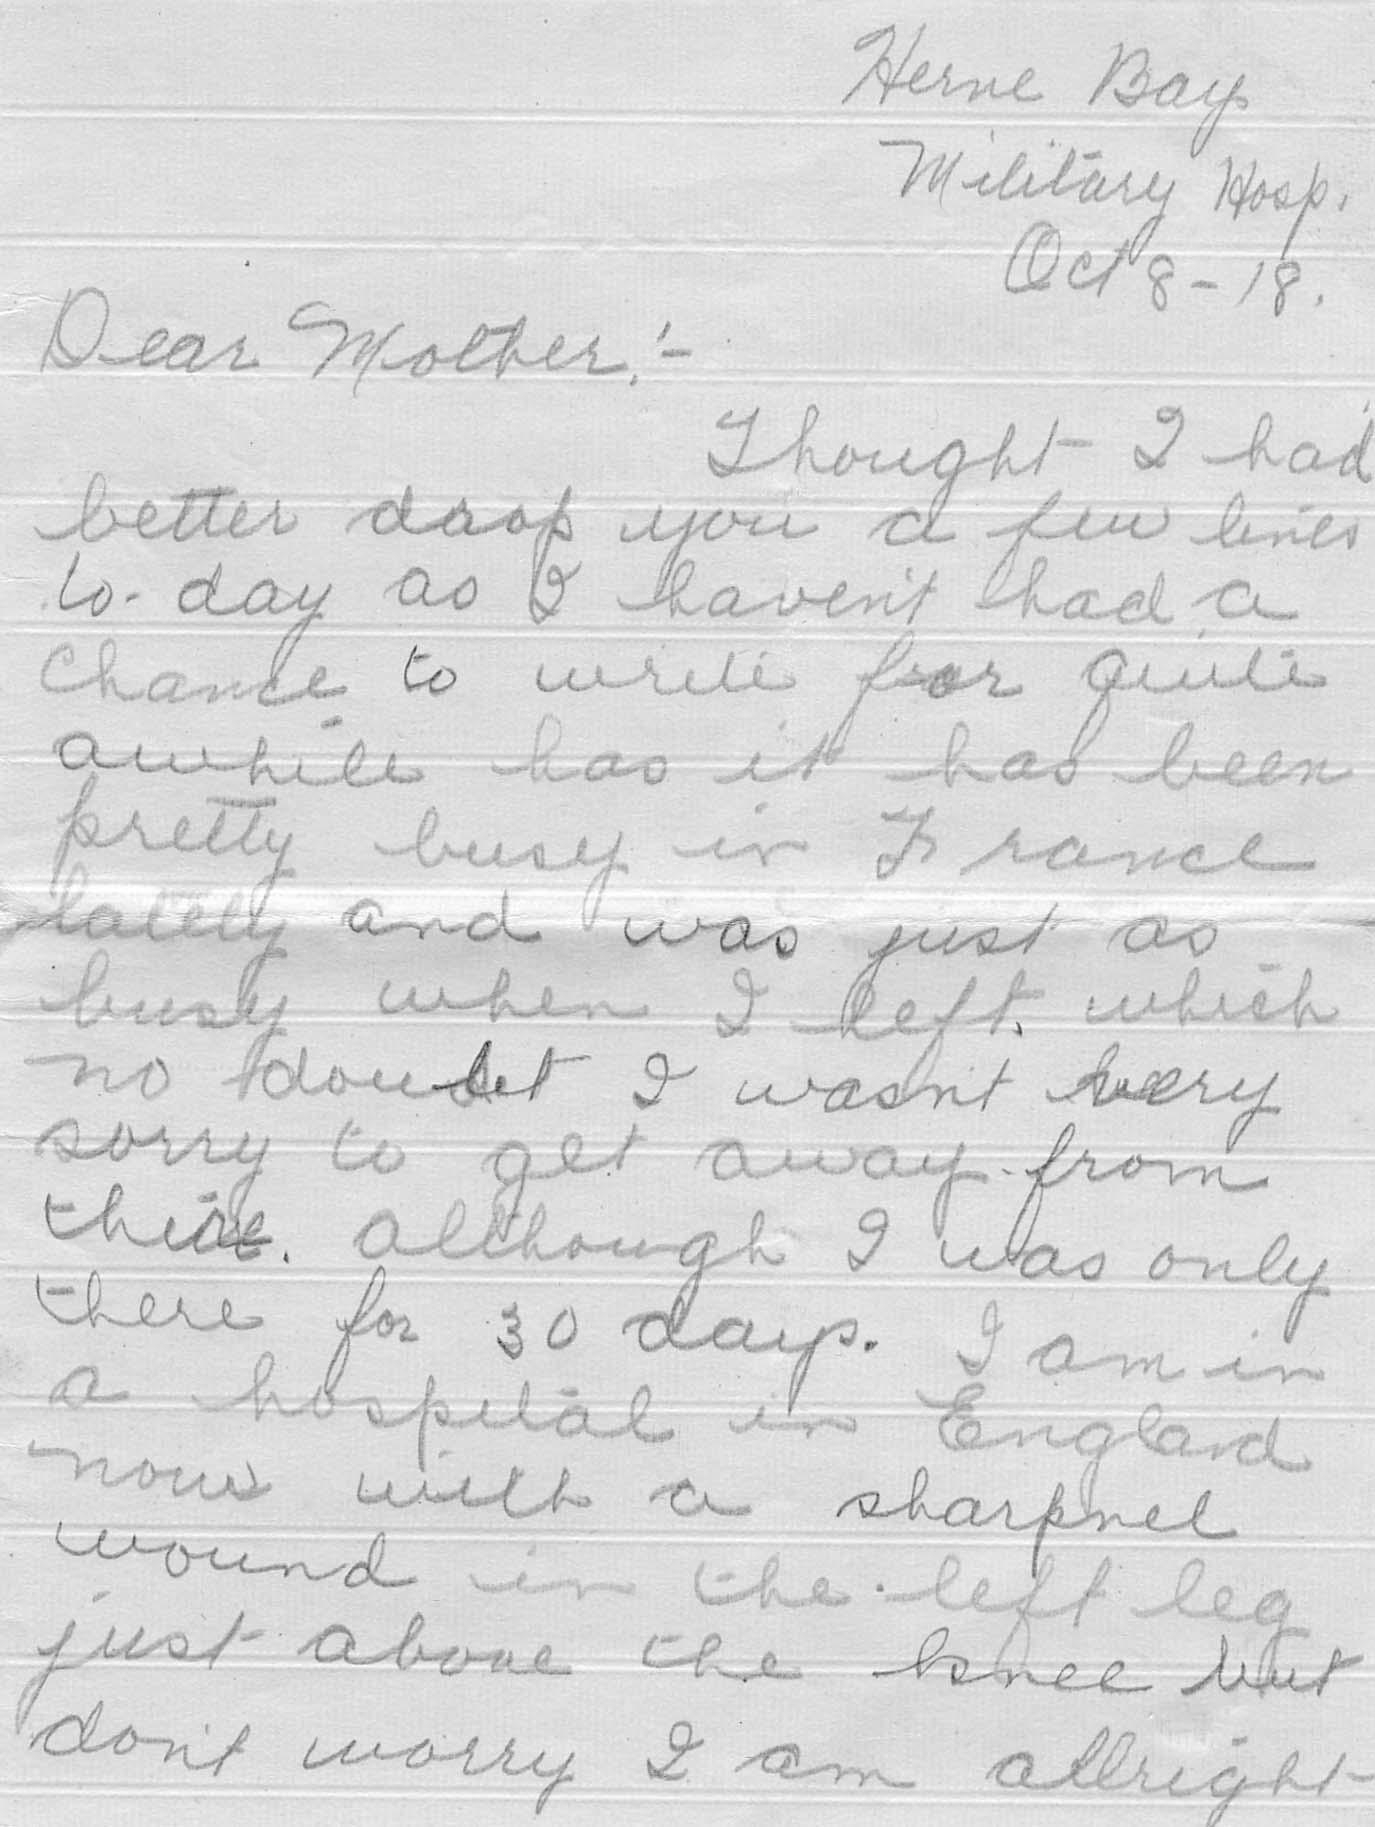 Herne Bay
Military Hosp.
Oct 8-18.
Dear Mother:-
Thought I had
better drop you a few lines
to-day as I haven't had a
chance to write for quite
awhile has it has been
pretty busy in France
lately and was just as
busy when I left. which
no doubt I wasn't very
sorry to get away from
there. although I was only
there for 30 days. I am in
a hospital in England
now with a sharpnel
wound in the left leg
just above the knee but
don't worry I am allright